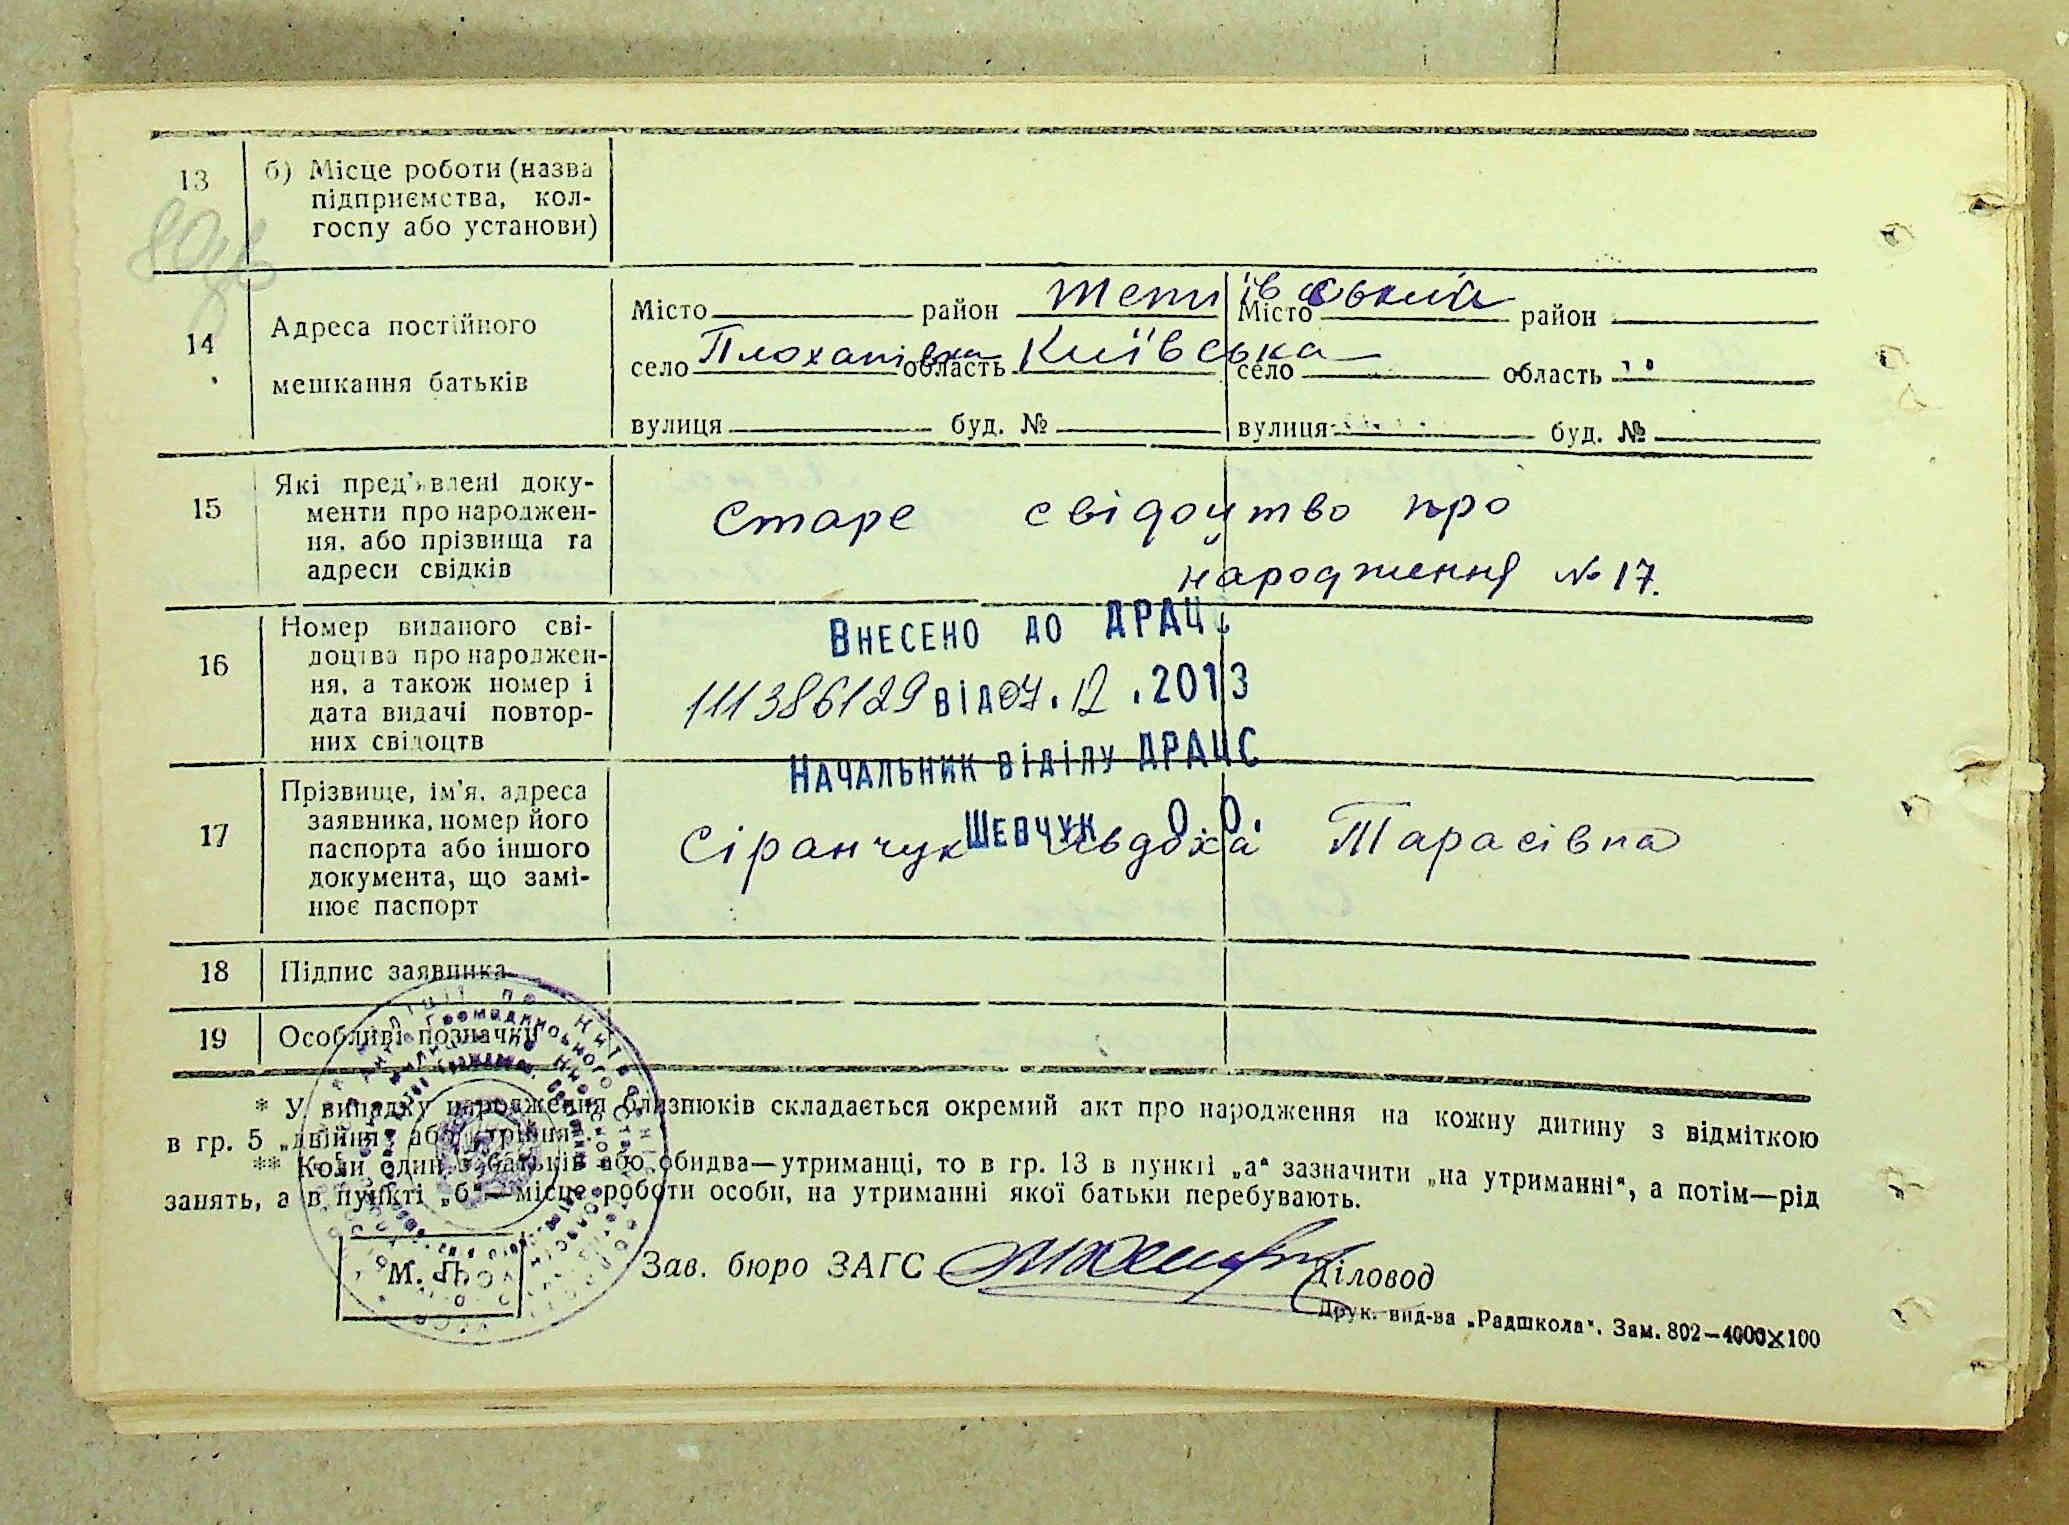 13
б) Місце роботи (назва
підприємства, кол-
госпу або установи)
14
Адреса постійного
мешкання батьків
Місто район Тетиївський Місто район
село Плохапівка область Київська село область "
вулиця буд. № вулиця буд. №
15
Які пред'явлені доку-
менти про народжен-
ня, або прізвища та
адреси свідків
Старе свідоцтво про
народження № 17.
16
Номер виданого сві-
доцтва про народжен-
ня, а також номер і
дата видачі повтор-
них свідоцтв
Внесено до ДРАЦС
111386129 від 07.12.2013
Начальник відділу ДРАЦС
Шевчук О.О.
17
Прізвище, ім'я, адреса
заявника, номер його
паспорта або іншого
документа, що замі-
нює паспорт
Сіранчук Явдоха Тарасівна
18
Підпис заявника
19
Особливі позначки
* У випадку народження близнюків складається окремий акт про народження на кожну дитину з відміткою
в гр. 5 „двійня" або „трійня".
** Коли один з батьків або обидва—утриманці, то в гр. 13 в пункті „а" зазначити „на утриманні", а потім—рід
занять, а в пункті „б"—місце роботи особи, на утриманні якої батьки перебувають.
М. П.
Зав. бюро ЗАГС
Діловод
Друк. вид-ва „Радшкола". Зам. 802—4000×100